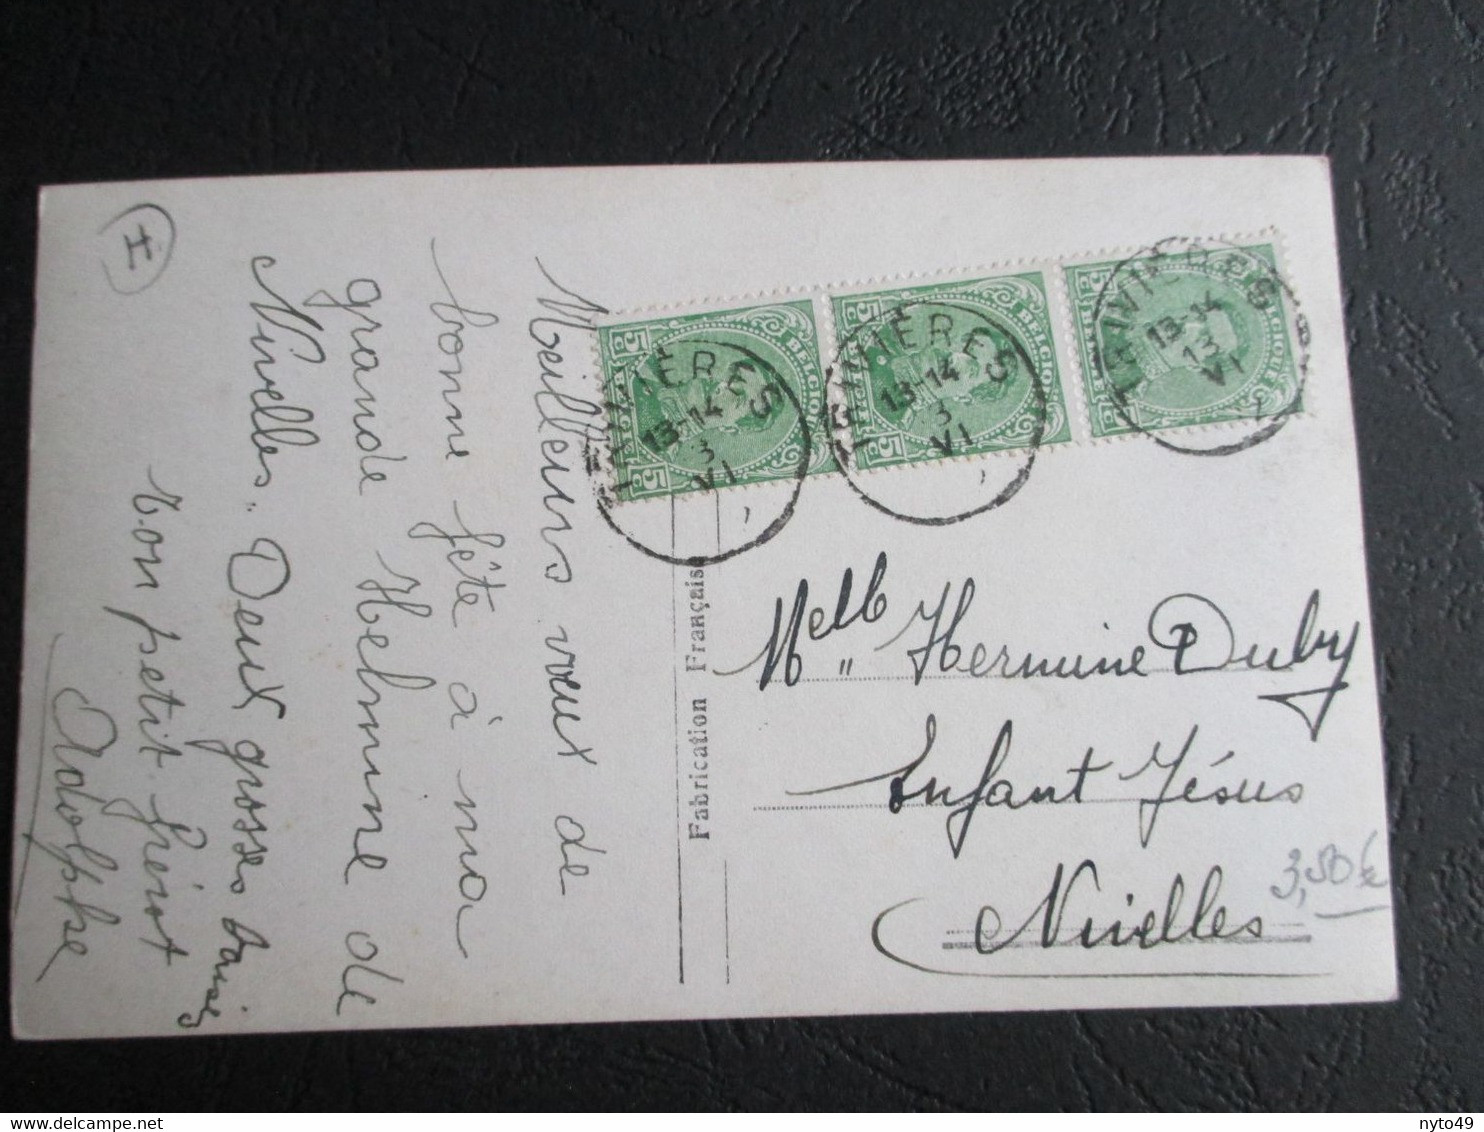 Meilleurs vœux de
bonne fête à ma
grande Helmine de
Nivelles. Deux grosses baises
Ton petit frérot
Adolphe
Fabrication Française
5 BELGIQUE 5
5 BELGIQUE 5
5 BELGIQUE 5
13-14
3
VI
13-14
3
VI
13-14
13
VI
Melle Hermine Duby
Enfant Jésus
Nivelles
3,50 €
nyto49